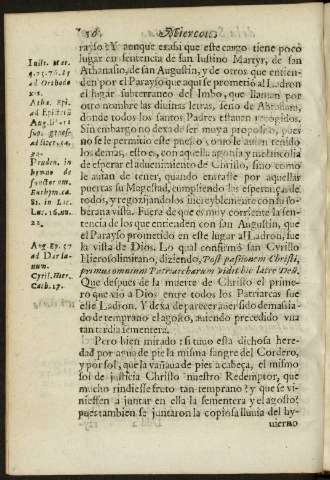 56. Miercoles
rayso? Y aunque es assi que este cargo tiene poco
lugar en sentencia de san Iustino Martyr, de san
Athanasio, de san Augustin, y de otros que entien-
den por el Parayso que aqui se prometió al Ladron
el lugar subterraneo del Imbo, que llaman por
otro nombre las diuinas letras, seno de Abraham,
donde todos los santos Padres estauan recogidos.
Sin embargo no dexa de ser muy a proposito, pues
no se le permitio este puesto como le auian tenido
los demas, esto es, con aquella agonia y melancolia
de esperar el aduenimiento de Christo, sino como
le auian de tener, quando entrasse por aquellas
puertas su Magestad, cumpliendo las esperanças de
todos, y regozijandolos increyblemente con su so-
berana vista. Fuera de que es muy corriente la sen-
tencia de los que entienden con san Augustin, que
el Parayso prometido en este lugar al Ladron, fue
la vista de Dios. Lo qual confirmò san Cyrillo
Hierosolimitano, diziendo, Post passionem Christi,
primus omnium Patriarcharum vidit hic latro Deũ.
Que despues de la muerte de Christo el prime-
ro que vio a Dios entre todos los Patriarcas fue
este Ladron. Y dexa de parecer auer sido demasia-
do temprano el agosto, auiendo precedido vna
tan tardia sementera.
Pero bien mirado: si tuuo esta dichosa here-
dad por agua de pie la misma sangre del Cordero,
y por sol, que la vañaua de pies a cabeça, el mismo
sol de justicia Christo nuestro Redemptor, que
mucho rindiesse fruto tan temprano? y que se vi-
niessen a juntar en ella la sementera y el agosto?
pues tambien se juntaron la copiosa lluuia del hy-
uierno
Iusti. Mar.
ad Orthodo
Atha. Epi.
ad Epictetũ
Aug. li.
sup. genes.
ad litter.
Pruden. in
hymno de
Euthym. ca.
81. in Luc.
Luc. 16. nu.
22.
Aug. Ep. 57
ad Darda-
num.
Cyril. Hier.
Catb. 17.